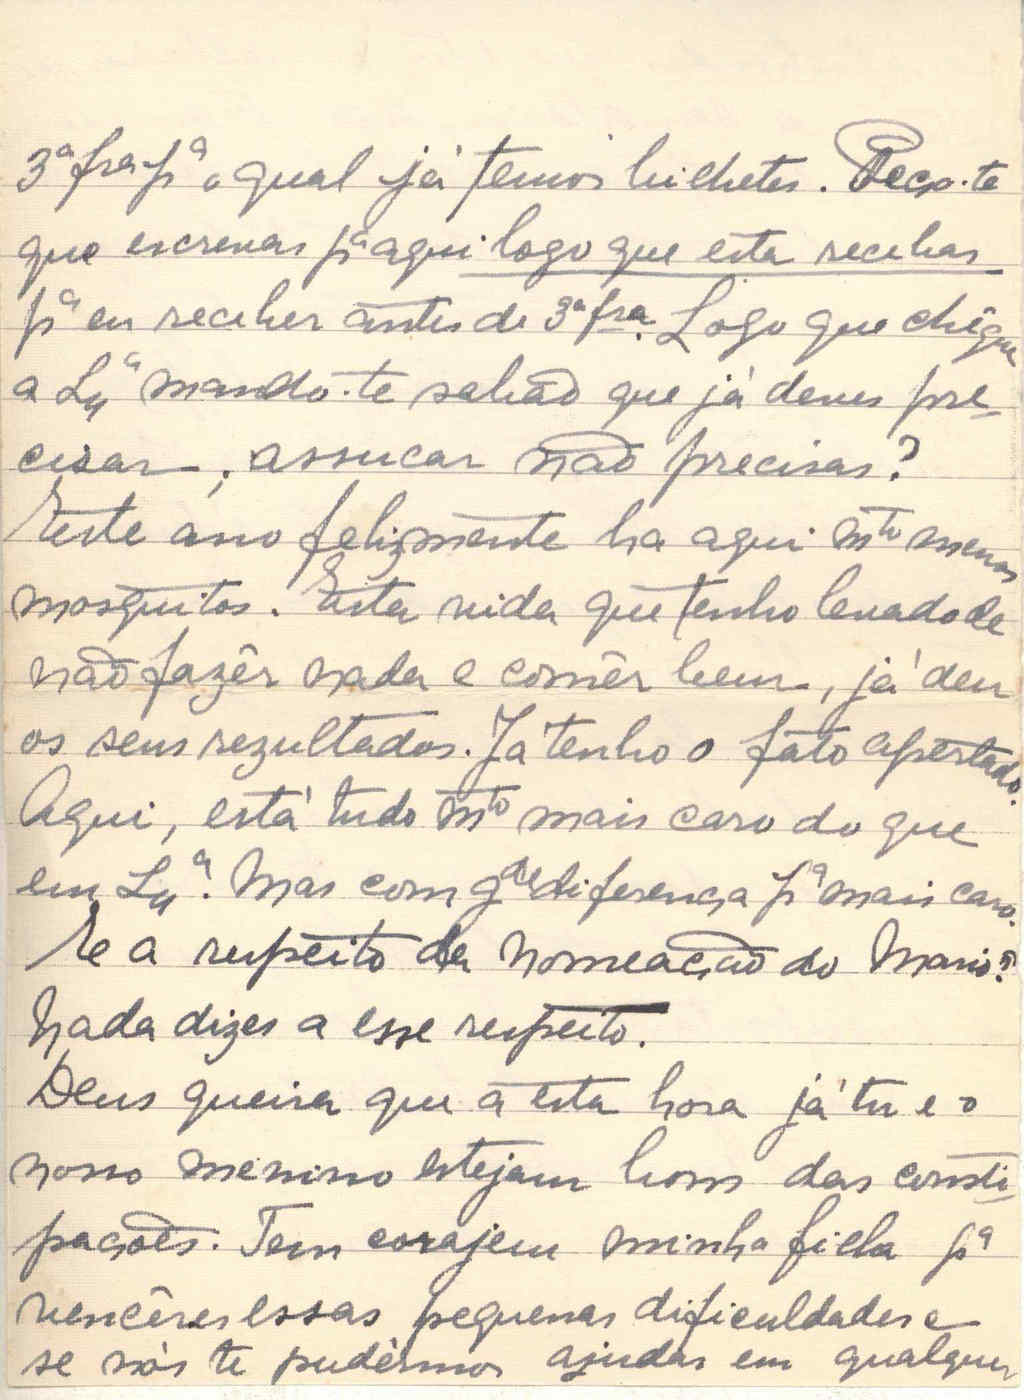 3ª fra pª o qual já temos bilhetes. Peço-te
que escrevas pª aqui logo que esta recebas
pª eu receber antes de 3ª fra. Logo que chêgue
a Lxª mando-te sabão que já deves pre-
cisar; assucar não precisas?
Este ano felizmente ha aqui mto menos
mosquitos. Esta vida que tenho levado de
não fazêr nada e comêr bem, já deu
os seus rezultados. Já tenho o fato apertado.
Aqui, está tudo mto mais caro do que
em Lxª. Mas com gde diferença pª mais caro.
E a respeito da nomeação do Mario?
Nada dizes a esse respeito.
Deus queira que a esta hora já tu e o
nosso menino estejam bons das consti-
pações. Tem corajem minha filha pª
vencêres essas pequenas dificuldades e
se nós te pudérmos ajudar em qualquer